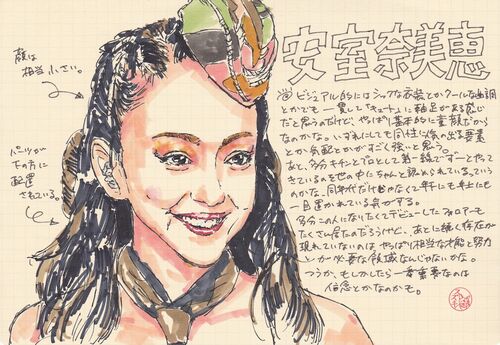 安室奈美恵
顔は
相当小さい。
パーツが
下の方に
配置
されている。
ビジュアル的にはシックな衣装とかクールな曲調
とかでも一貫して「キュート」に軸足がある感じ
だと思うのだけど、やっぱり基本的に童顔だから
なのかな。いずれにしても同性
とか気配とかがすごく強いと思う。
あと、多分キチンとプロとして第一線でずーっとやって
きているのを世の中にちゃんと認められているっていう
のかな、同年代だけじゃなくて年下にも年上にも
一目置かれている気がする。
多分この人になりたくてデビューしたフォロアーも
たくさん居たのだろうけど、あとに続く存在が
現れていないのは、やっぱり相当な才能と努力
とか必要な領域なんじゃないかな。
つうか、もしかしたら一番重要なのは
信念とかなのかも。